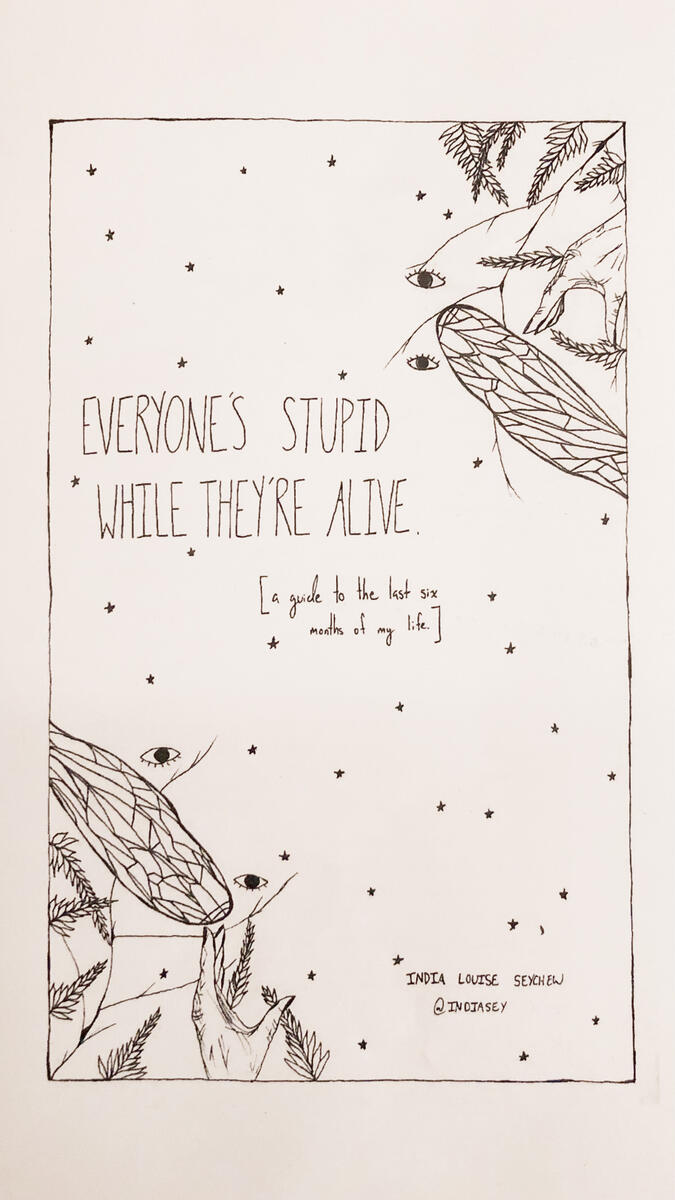 EVERYONE'S STUPID
WHILE THEY'RE ALIVE.
[a guide to the last six
months of my life.]
INDIA LOUISE SEYCHEW
@INDIASEY